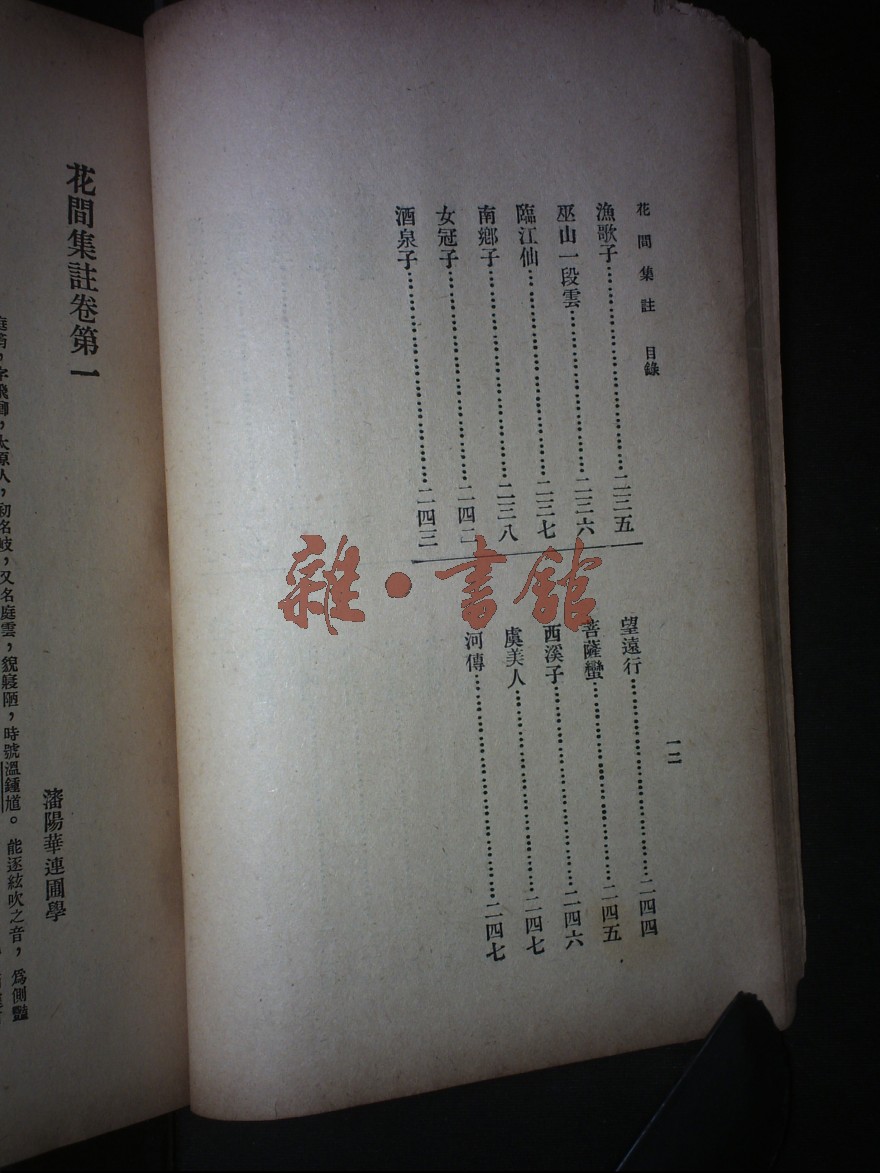 花間集註 目錄
漁歌子……二三五
巫山一段雲……二三六
臨江仙……二三七
南鄉子……二三八
女冠子……二四二
酒泉子……二四三
望遠行……二四四
菩薩蠻……二四五
西溪子……二四六
虞美人……二四七
河傳……二四七
一二
雜·書館
花間集註卷第一
瀋陽華連圃學
庭筠，字飛卿，太原人，初名岐，又名庭雲，貌寢陋，時號溫鍾馗。能逐絃吹之音，爲側豔